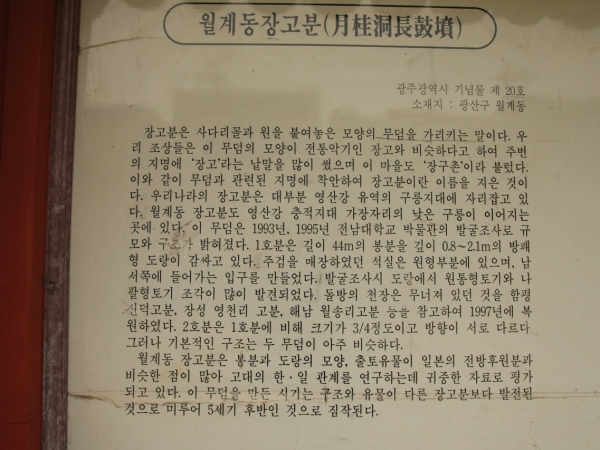 월계동장고분(月桂洞長鼓墳)
광주광역시 기념물 제 20호
소재지 : 광산구 월계동
장고분은 사다리꼴과 원을 붙여놓은 모양의 무덤을 가리키는 말이다. 우
리 조상들은 이 무덤의 모양이 전통악기인 장고와 비슷하다고 하여 주변
의 지명에 '장고'라는 낱말을 많이 썼으며 이 마을도 '장구촌'이라 불렀다.
이와 같이 무덤과 관련된 지명에 착안하여 장고분이란 이름을 지은 것이
다. 우리나라의 장고분은 대부분 영산강 유역의 구릉지대에 자리잡고 있
다. 월계동 장고분도 영산강 충적지대 가장자리의 낮은 구릉이 이어지는
곳에 있다. 이 무덤은 1993년, 1995년 전남대학교 박물관의 발굴조사로 규
모와 구조가 밝혀졌다. 1호분은 길이 44m의 봉분을 깊이 0.8~2.1m의 방패
형 도랑이 감싸고 있다. 주검을 매장하였던 석실은 원형부분에 있으며, 남
서쪽에 들어가는 입구를 만들었다. 발굴조사시 도랑에서 원통형토기와 나
팔형토기 조각이 많이 발견되었다. 돌방의 천장은 무너져 있던 것을 함평
신덕고분, 장성 영천리 고분, 해남 월송리고분 등을 참고하여 1997년에 복
원하였다. 2호분은 1호분에 비해 크기가 3/4정도이고 방향이 서로 다르다
그러나 기본적인 구조는 두 무덤이 아주 비슷하다.
월계동 장고분은 봉분과 도랑의 모양, 출토유물이 일본의 전방후원분과
비슷한 점이 많아 고대의 한·일 관계를 연구하는데 귀중한 자료로 평가
되고 있다. 이 무덤을 만든 시기는 구조와 유물이 다른 장고분보다 발전된
것으로 미루어 5세기 후반인 것으로 짐작된다.